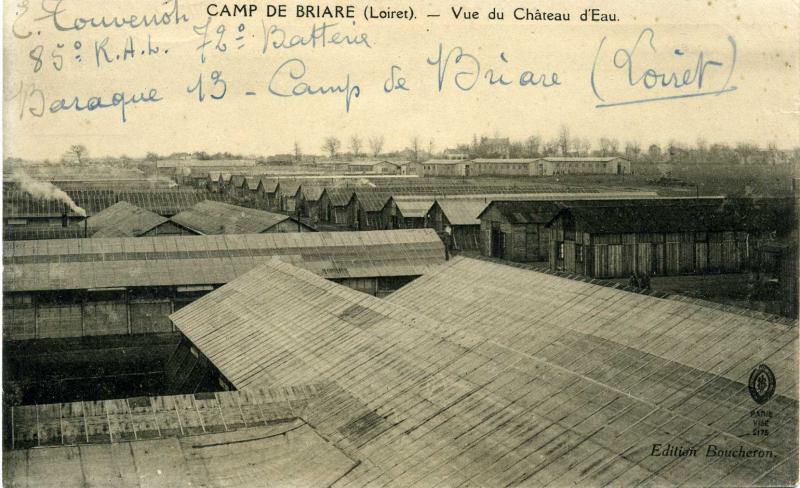 CAMP DE BRIARE (Loiret). — Vue du Château d'Eau.
E. Touvenot
85º R.A.L. 72º Batterie
Baraque 13 - Camp de Briare (Loiret)
PARIS
VISÉ
2175
Edition Boucheron.